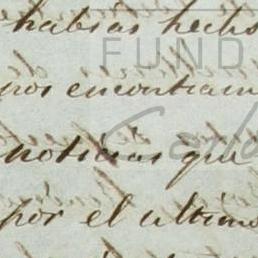 habias hecho
FUND
nos encontram
noticias que
por el ultimo